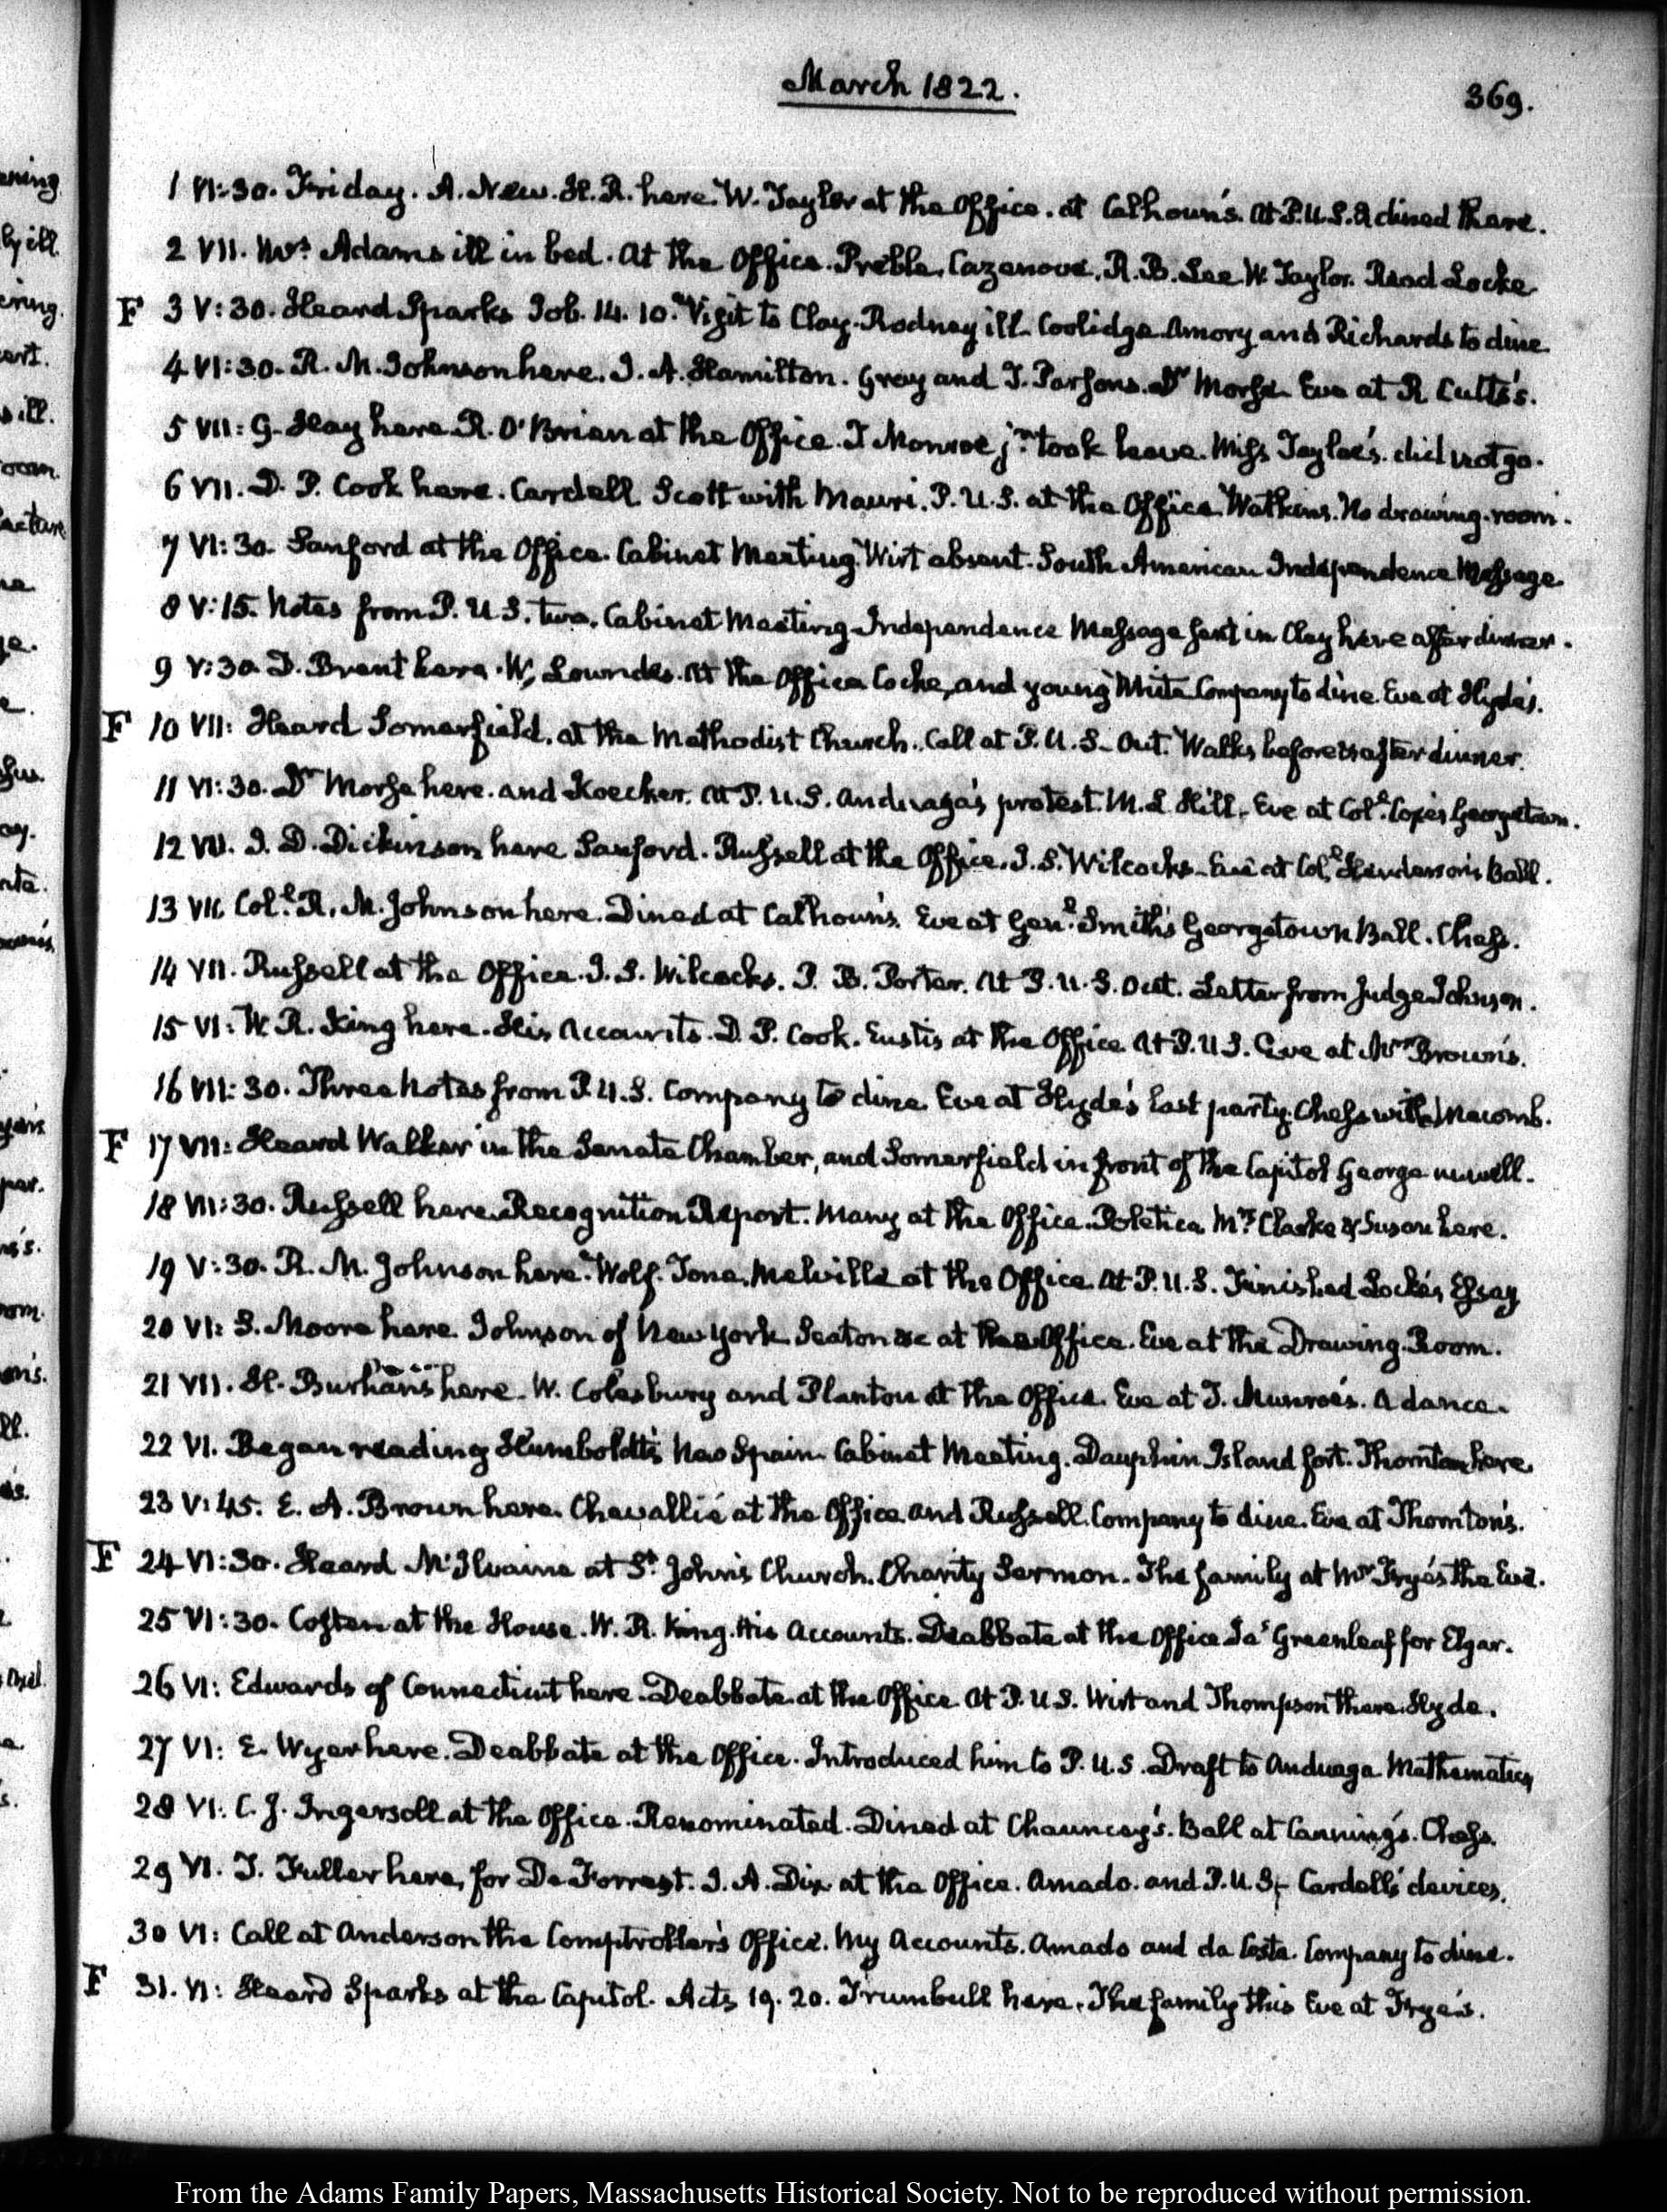 March 1822.
369.
1 VI:30. Friday. A. New. H. R. here. W. Taylor at the Office. at Calhoun's. At P.U.S. dined there.
2 VII. Mrs Adams ill in bed. At the Office. Preble, Cazenove, R. B. Lee W. Taylor. Read Locke
F 3 V:30. Heard Sparks Job. 14. 10. Visit to Clay. Rodney ill. Coolidge Amory and Richards to dine.
4 VI:30. R. M. Johnson here. J. A. Hamilton. Gray and T. Parsons. Dr Morse. Eve at R. Cutts's.
5 VII: G. Hay here R. O'Brian at the Office. J Monroe jr. took leave. Miss Tayloe's. did not go.
6 VII. D. P. Cook here. Cardell Scott with Mauri. P. U. S. at the Office. Watkins. No drawing-room.
7 VI:30. Sanford at the Office. Cabinet Meeting. Wirt absent. South American Independence Message
8 V:15. Notes from P. U. S. two. Cabinet Meeting Independence Message sent in Clay here after dinner.
9 V:30 D. Brent here. W. Lowndes. At the Office Cocke, and young White Company to dine. Eve at Hyde's.
F 10 VII: Heard Somerfield, at the Methodist Church. Call at P. U. S. Out. Walks before & after dinner.
11 VI:30. Dr Morse here. and Koecker. At P. U. S. Anduaga's protest. M. L. Hill. Eve at Coll. Cope's Georgetown.
12 VII. J. D. Dickinson here Sanford. Russell at the Office. J. S. Wilcocks. Eve at Coll. Henderson's Ball.
13 VII. Coll. R. M. Johnson here. Dined at Calhoun's. Eve at Genl. Smith's Georgetown Ball. Chess.
14 VII. Russell at the Office. J. S. Wilcocks. P. B. Porter. At P. U. S. Out. Letter from Judge Johnson.
15 VI: W. R. King here. His Accounts. D. P. Cook. Eustis at the Office At P. U S. Eve at Mrs Brown's.
16 VII:30. Three Notes from P. U. S. Company to dine. Eve at Hyde's last party. Chess with Macomb.
F 17 VII: Heard Walker in the Senate Chamber, and Somerfield in front of the Capitol George unwell.
18 VII:30. Russell here. Recognition Report. Many at the Office. Poletica Mrs Clarke & Susan here.
19 V:30. R. M. Johnson here. Wolf. Tone. Melville at the Office At P. U. S. Finished Locke's Essay
20 VI: S. Moore here. Johnson of New York. Seaton &c at the Office. Eve at the Drawing Room.
21 VII. H. Burhans here. W. Colesbury and Planton at the Office. Eve at T. Munroe's. A dance.
22 VI. Began reading Humboldt's New Spain. Cabinet Meeting. Dauphin Island fort. Thornton here
23 V:45. E. A. Brown here. Chevallié at the Office and Russell. Company to dine. Eve at Thornton's.
F 24 VI:30. Heard McIlvaine at St. John's Church. Charity Sermon. The family at Mrs Frye's the Eve.
25 VI:30. Costen at the House. W. R. King. His Accounts. Deabbate at the Office Jas Greenleaf for Elgar.
26 VI: Edwards of Connecticut here. Deabbate at the Office At P. U S. Wirt and Thompson there. Hyde.
27 VI: E. Wyer here. Deabbate at the Office. Introduced him to P. U. S. Draft to Anduaga Mathematics
28 VI. C. J. Ingersoll at the Office. Renominated. Dined at Chauncey's. Ball at Canning's. Chess.
29 VI. T. Fuller here, for De Forrest. J. A. Dix at the Office. Amado. and P. U. S. Cardell's devices.
30 VI: Call at Anderson the Comptroller's Office. My Accounts. Amado and da Costa. Company to dine.
F 31. VI: Heard Sparks at the Capitol. Acts 19. 20. Trumbull here. The family this Eve at Frye's.
From the Adams Family Papers, Massachusetts Historical Society. Not to be reproduced without permission.